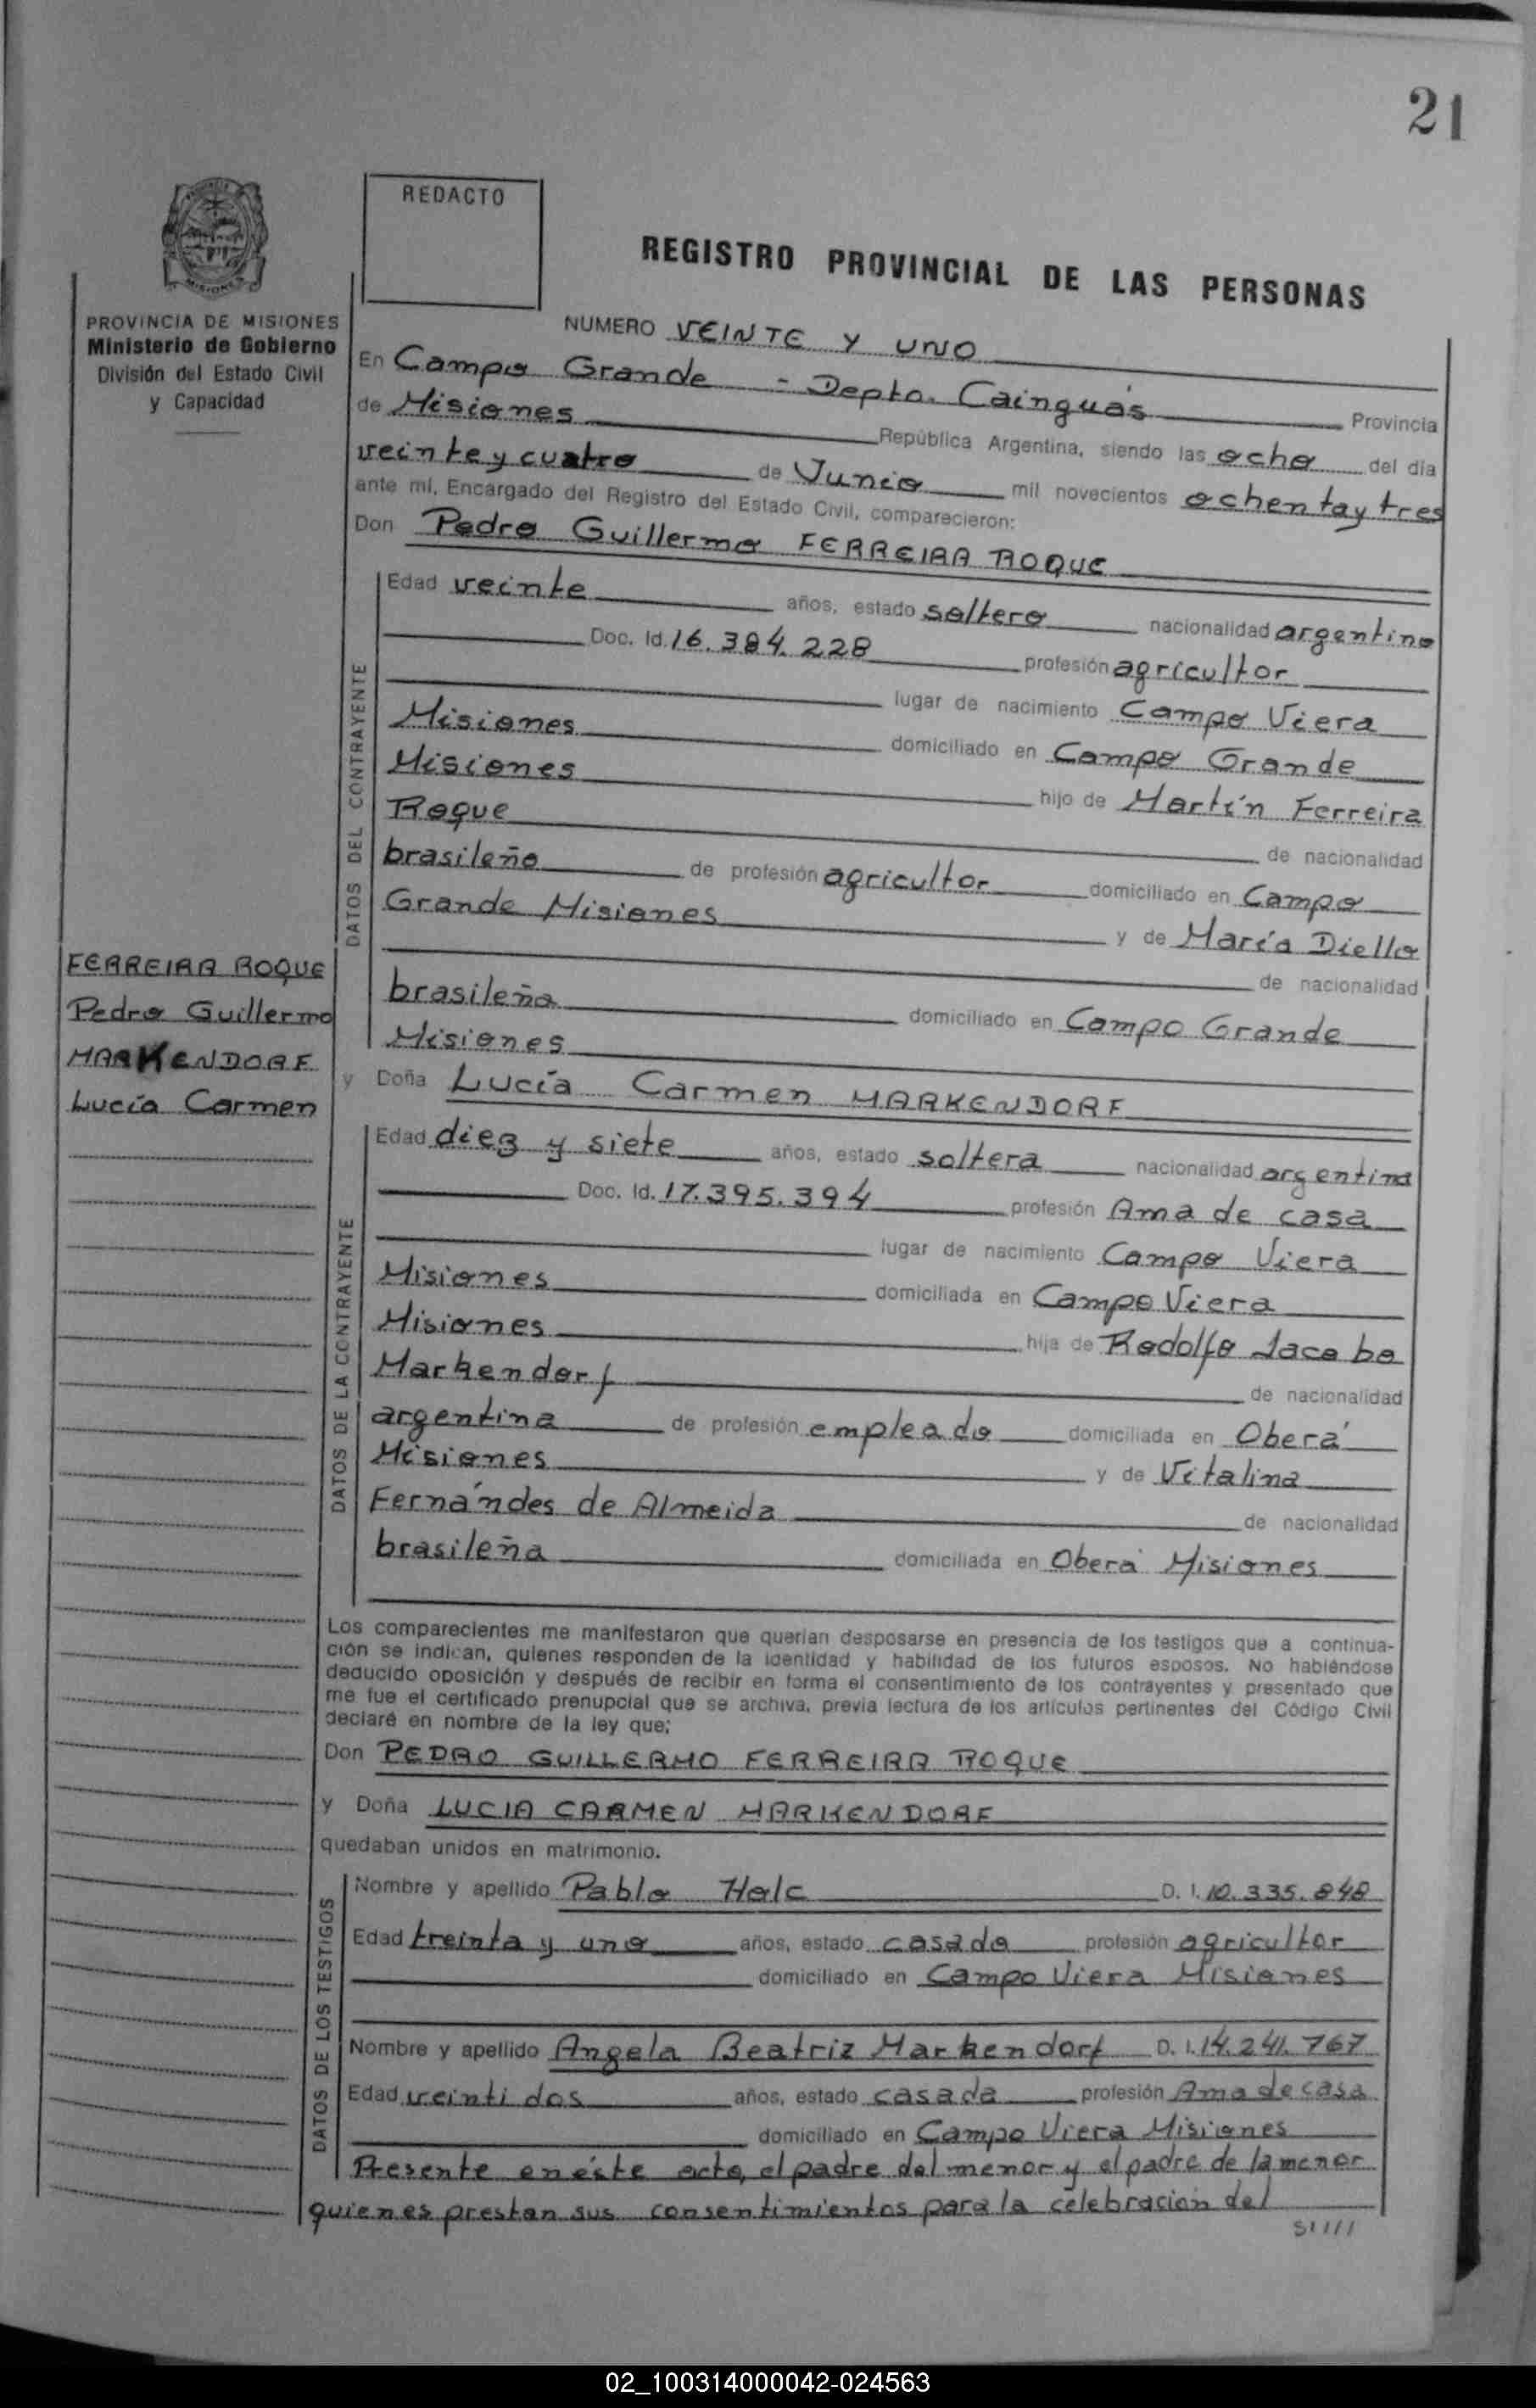 21
REDACTO
REGISTRO PROVINCIAL DE LAS PERSONAS
PROVINCIA DE MISIONES
Ministerio de Gobierno
División del Estado Civil
y Capacidad
NUMERO VEINTE Y UNO
En Campo Grande - Depto. Cainguás
de Misiones Provincia
República Argentina, siendo las ocho del día
veinte y cuatro de Junio mil novecientos ochenta y tres
ante mí, Encargado del Registro del Estado Civil, comparecieron:
Don Pedro Guillermo FERREIRA ROQUE
DATOS DEL CONTRAYENTE
Edad veinte años, estado soltero nacionalidad argentino
Doc. Id. 16.384.228 profesión agricultor
lugar de nacimiento Campo Viera
Misiones domiciliado en Campo Grande
Misiones hijo de Martín Ferreira
Roque de nacionalidad
brasileño de profesión agricultor domiciliado en Campo
Grande Misiones y de María Diello
de nacionalidad
brasileña domiciliado en Campo Grande
Misiones
FERREIRA ROQUE
Pedro Guillermo
MARKENDORF
Lucía Carmen
y Doña Lucía Carmen MARKENDORF
DATOS DE LA CONTRAYENTE
Edad diez y siete años, estado soltera nacionalidad argentina
Doc. Id. 17.395.394 profesión Ama de casa
lugar de nacimiento Campo Viera
Misiones domiciliada en Campo Viera
Misiones hija de Rodolfo Jacobo
Markendorf de nacionalidad
argentina de profesión empleado domiciliada en Oberá
Misiones y de Vitalina
Fernándes de Almeida de nacionalidad
brasileña domiciliada en Oberá Misiones
Los comparecientes me manifestaron que querían desposarse en presencia de los testigos que a continua-
ción se indican, quienes responden de la identidad y habilidad de los futuros esposos. No habiéndose
deducido oposición y después de recibir en forma el consentimiento de los contrayentes y presentado que
me fue el certificado prenupcial que se archiva, previa lectura de los artículos pertinentes del Código Civil
declaré en nombre de la ley que;
Don PEDRO GUILLERMO FERREIRA ROQUE
y Doña LUCIA CARMEN MARKENDORF
quedaban unidos en matrimonio.
DATOS DE LOS TESTIGOS
Nombre y apellido Pablo Halc D. I. 10.335.848
Edad treinta y uno años, estado casado profesión agricultor
domiciliado en Campo Viera Misiones
Nombre y apellido Angela Beatriz Markendorf D. I. 14.241.767
Edad veinti dos años, estado casada profesión Ama de casa
domiciliado en Campo Viera Misiones
Presente en éste acto, el padre del menor y el padre de la menor
quienes prestan sus consentimientos para la celebración del
02_100314000042-024563